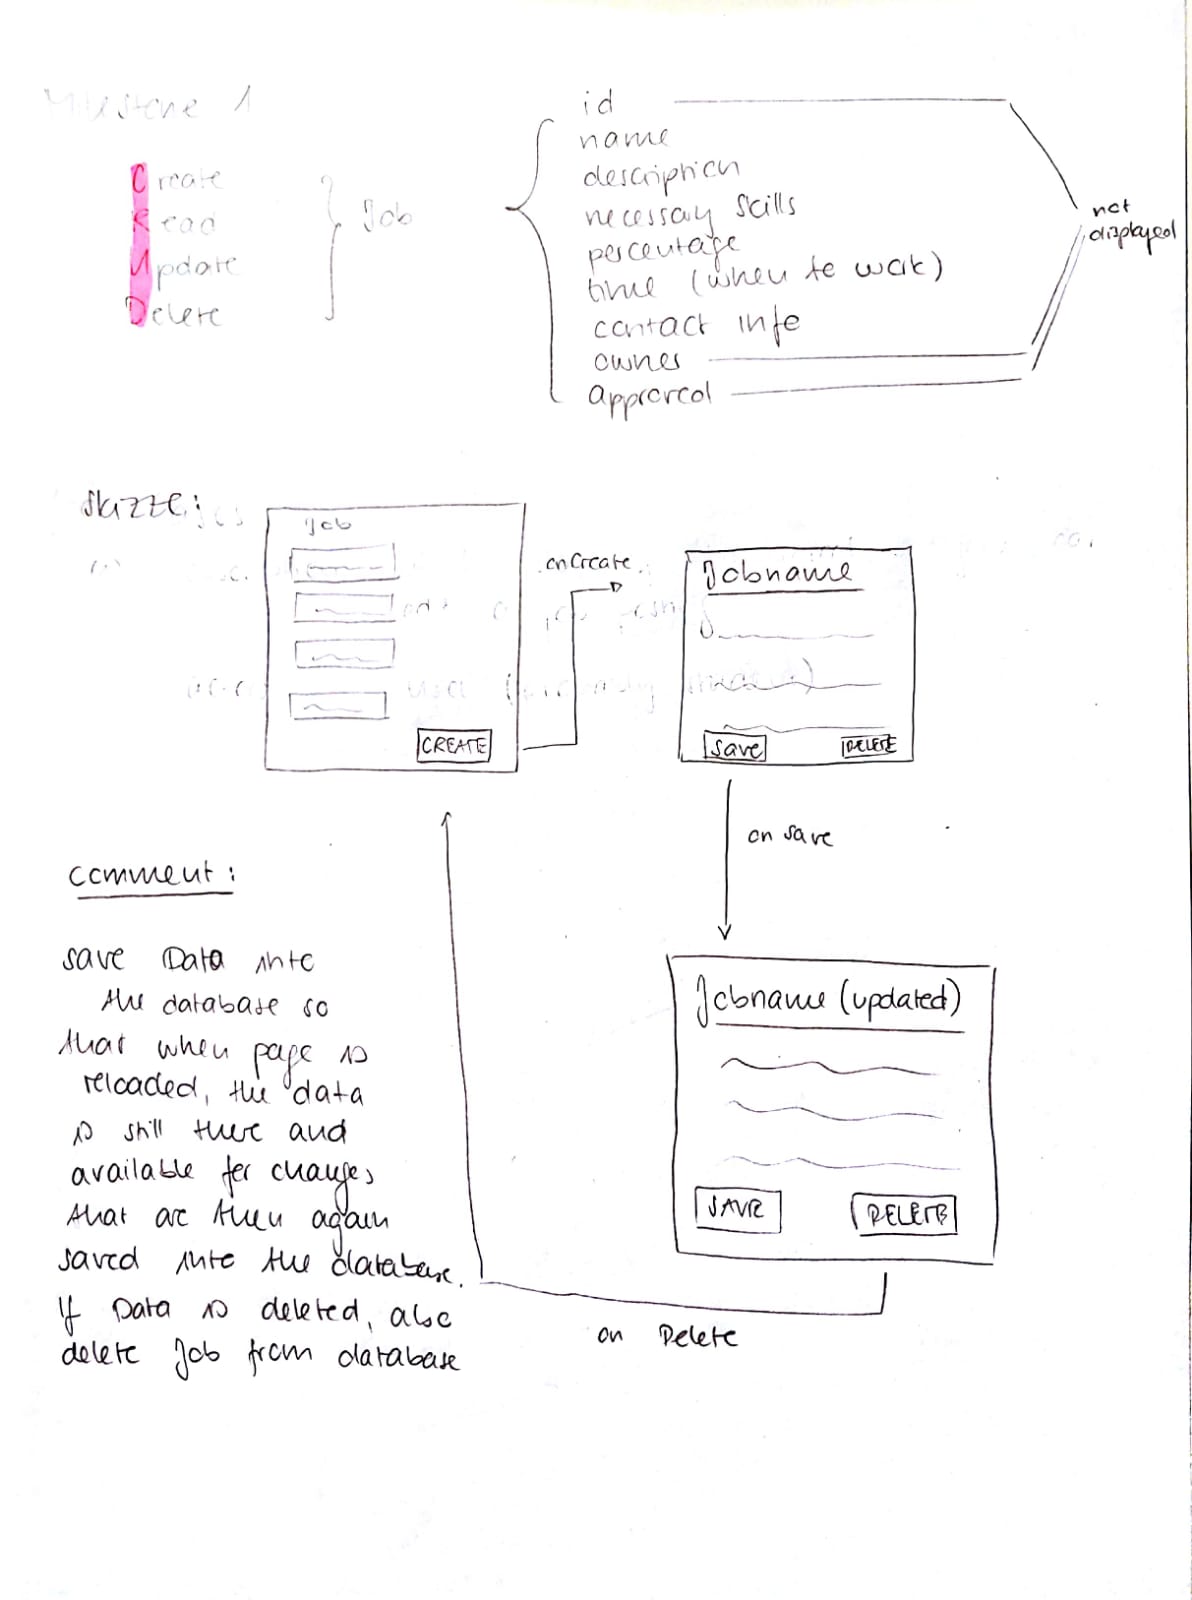 Milestone 1
Create
Read
Update
Delete
Job
id
name
description
necessary skills
percentage
time (when to work)
contact info
owner
approved
not
displayed
Skizze:
Job
CREATE
onCreate
Jobname
save
DELETE
on save
Jobname (updated)
SAVE
DELETE
on Delete
comment:
save Data into
the database so
that when page is
reloaded, the data
is still there and
available for changes
that are then again
saved into the database.
If Data is deleted, also
delete Job from database